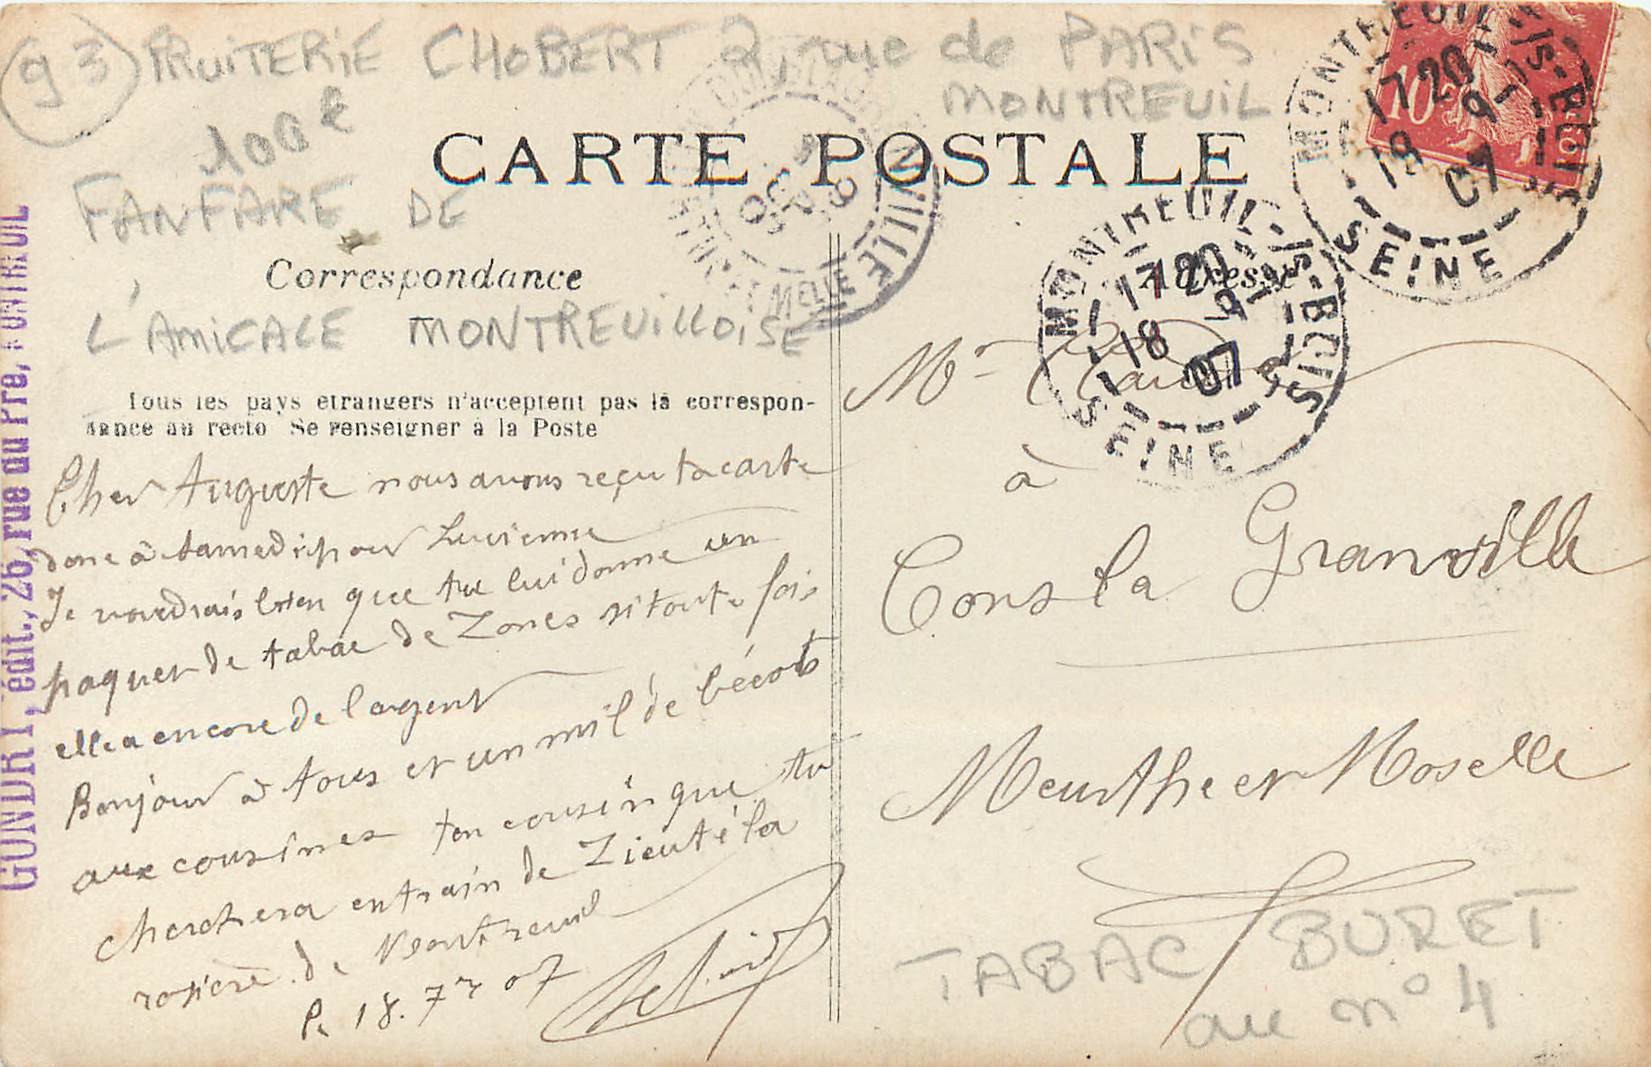 93 FRUITERIE CHOBERT 2, rue de PARIS
MONTREUIL
100€
FANFARE DE
L'AMICALE MONTREUILLOISE
CARTE POSTALE
Correspondance
Adresse
Tous les pays étrangers n'acceptent pas la correspon-
dance au recto Se renseigner à la Poste
Cher Auguste nous avons reçu ta carte
donc à samedi pour Lucienne
Je voudrais bien que tu lui donne un
paquet de tabac de Zones si toute fois
elle a encore de l'argent
Bonjour à tous et un mil de bécots
aux cousines ton cousin que tu
cherchera entrain de Zieuté la
rosière de Montreuil
P. 18. 7 07
Mr
à
Cons la Granville
Meurthe et Moselle
TABAC BURET
au n° 4
GONDRY, édit., 26, rue du Pré, MONTREUIL
MONTREUIL-S/S-BOIS
17 20
18 9
07
SEINE
MONTREUIL-S/S-BOIS
17 20
18 9
07
SEINE
10c